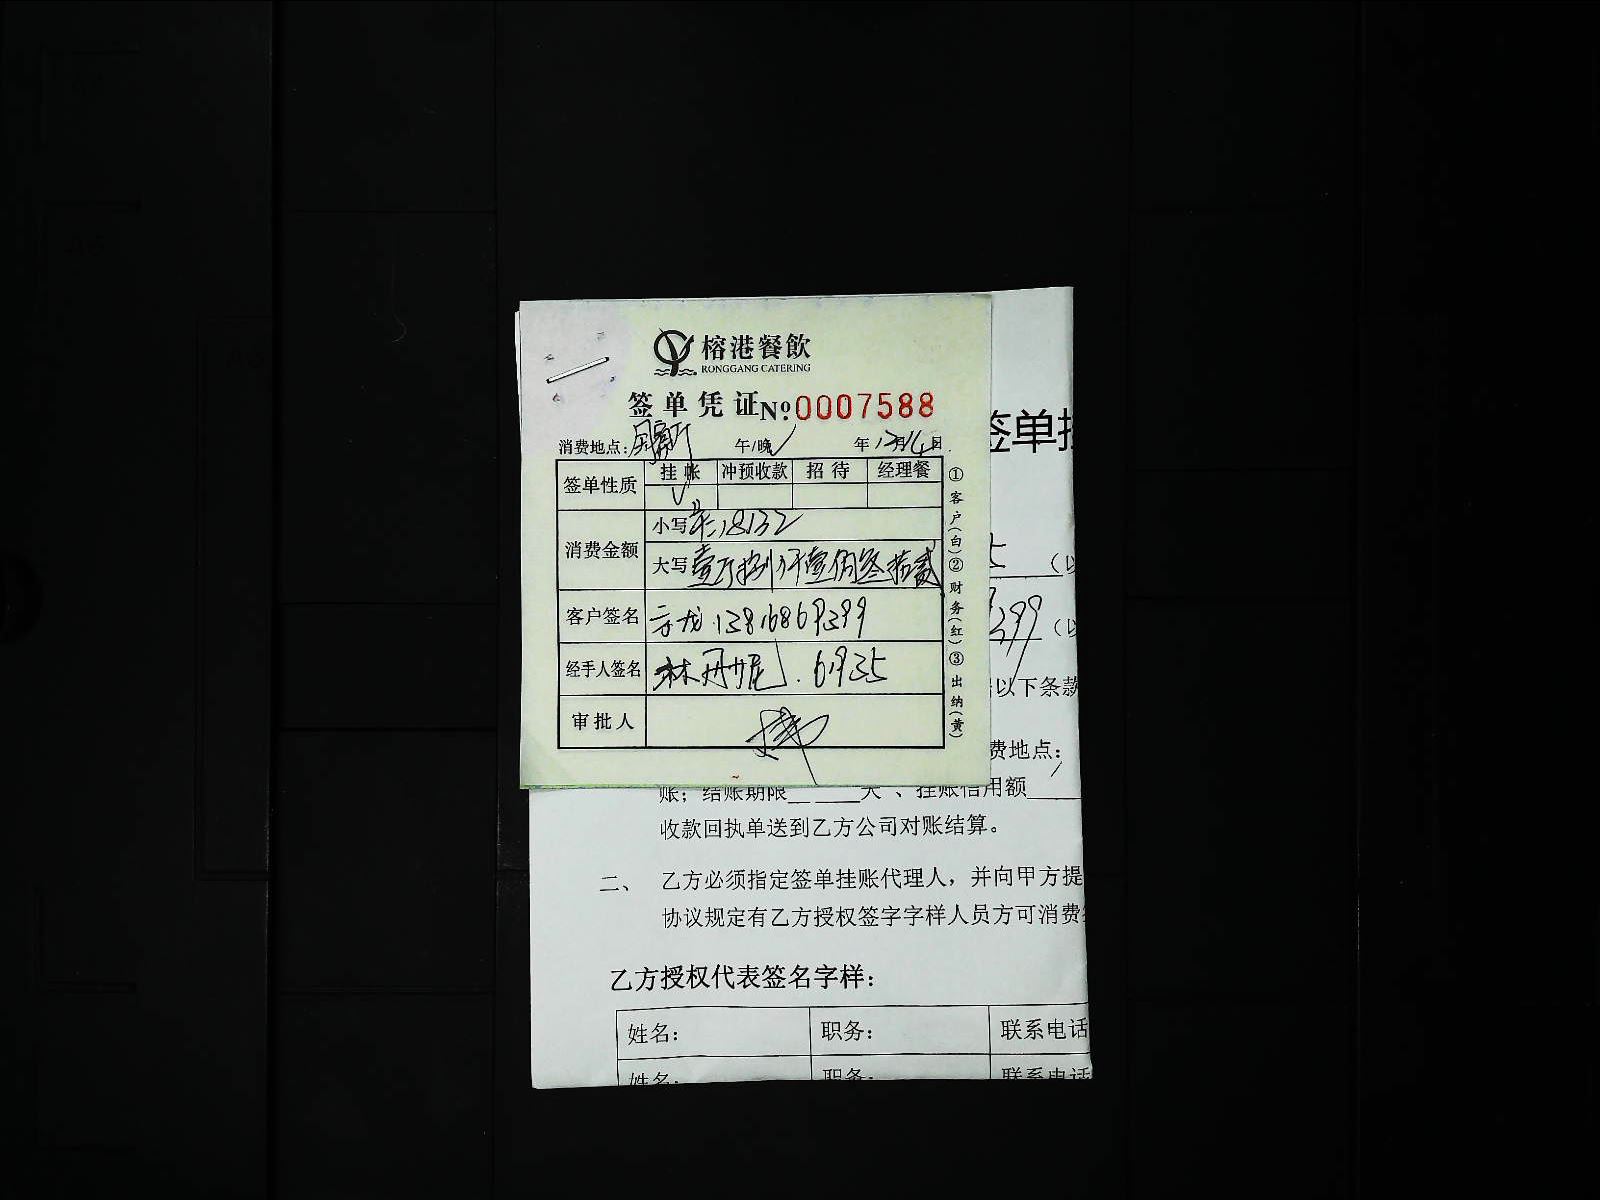 榕港餐飲
RONGGANG CATERING
签单凭证No 0007588
消费地点: 午/晚 年12月14日
签单性质 挂帐 冲预收款 招待 经理餐
消费金额 小写 18132
大写 壹万捌仟壹佰叁拾贰
客户签名 13816869399
经手人签名 林丹妮. 6935
审批人
①客户(白)②财务(红)③出纳(黄)
签单
399
以下条款
费地点:
账; 结账期限 天、挂账信用额
收款回执单送到乙方公司对账结算。
二、 乙方必须指定签单挂账代理人,并向甲方提
协议规定有乙方授权签字字样人员方可消费
乙方授权代表签名字样:
姓名: 职务: 联系电话
姓名: 职务: 联系电话